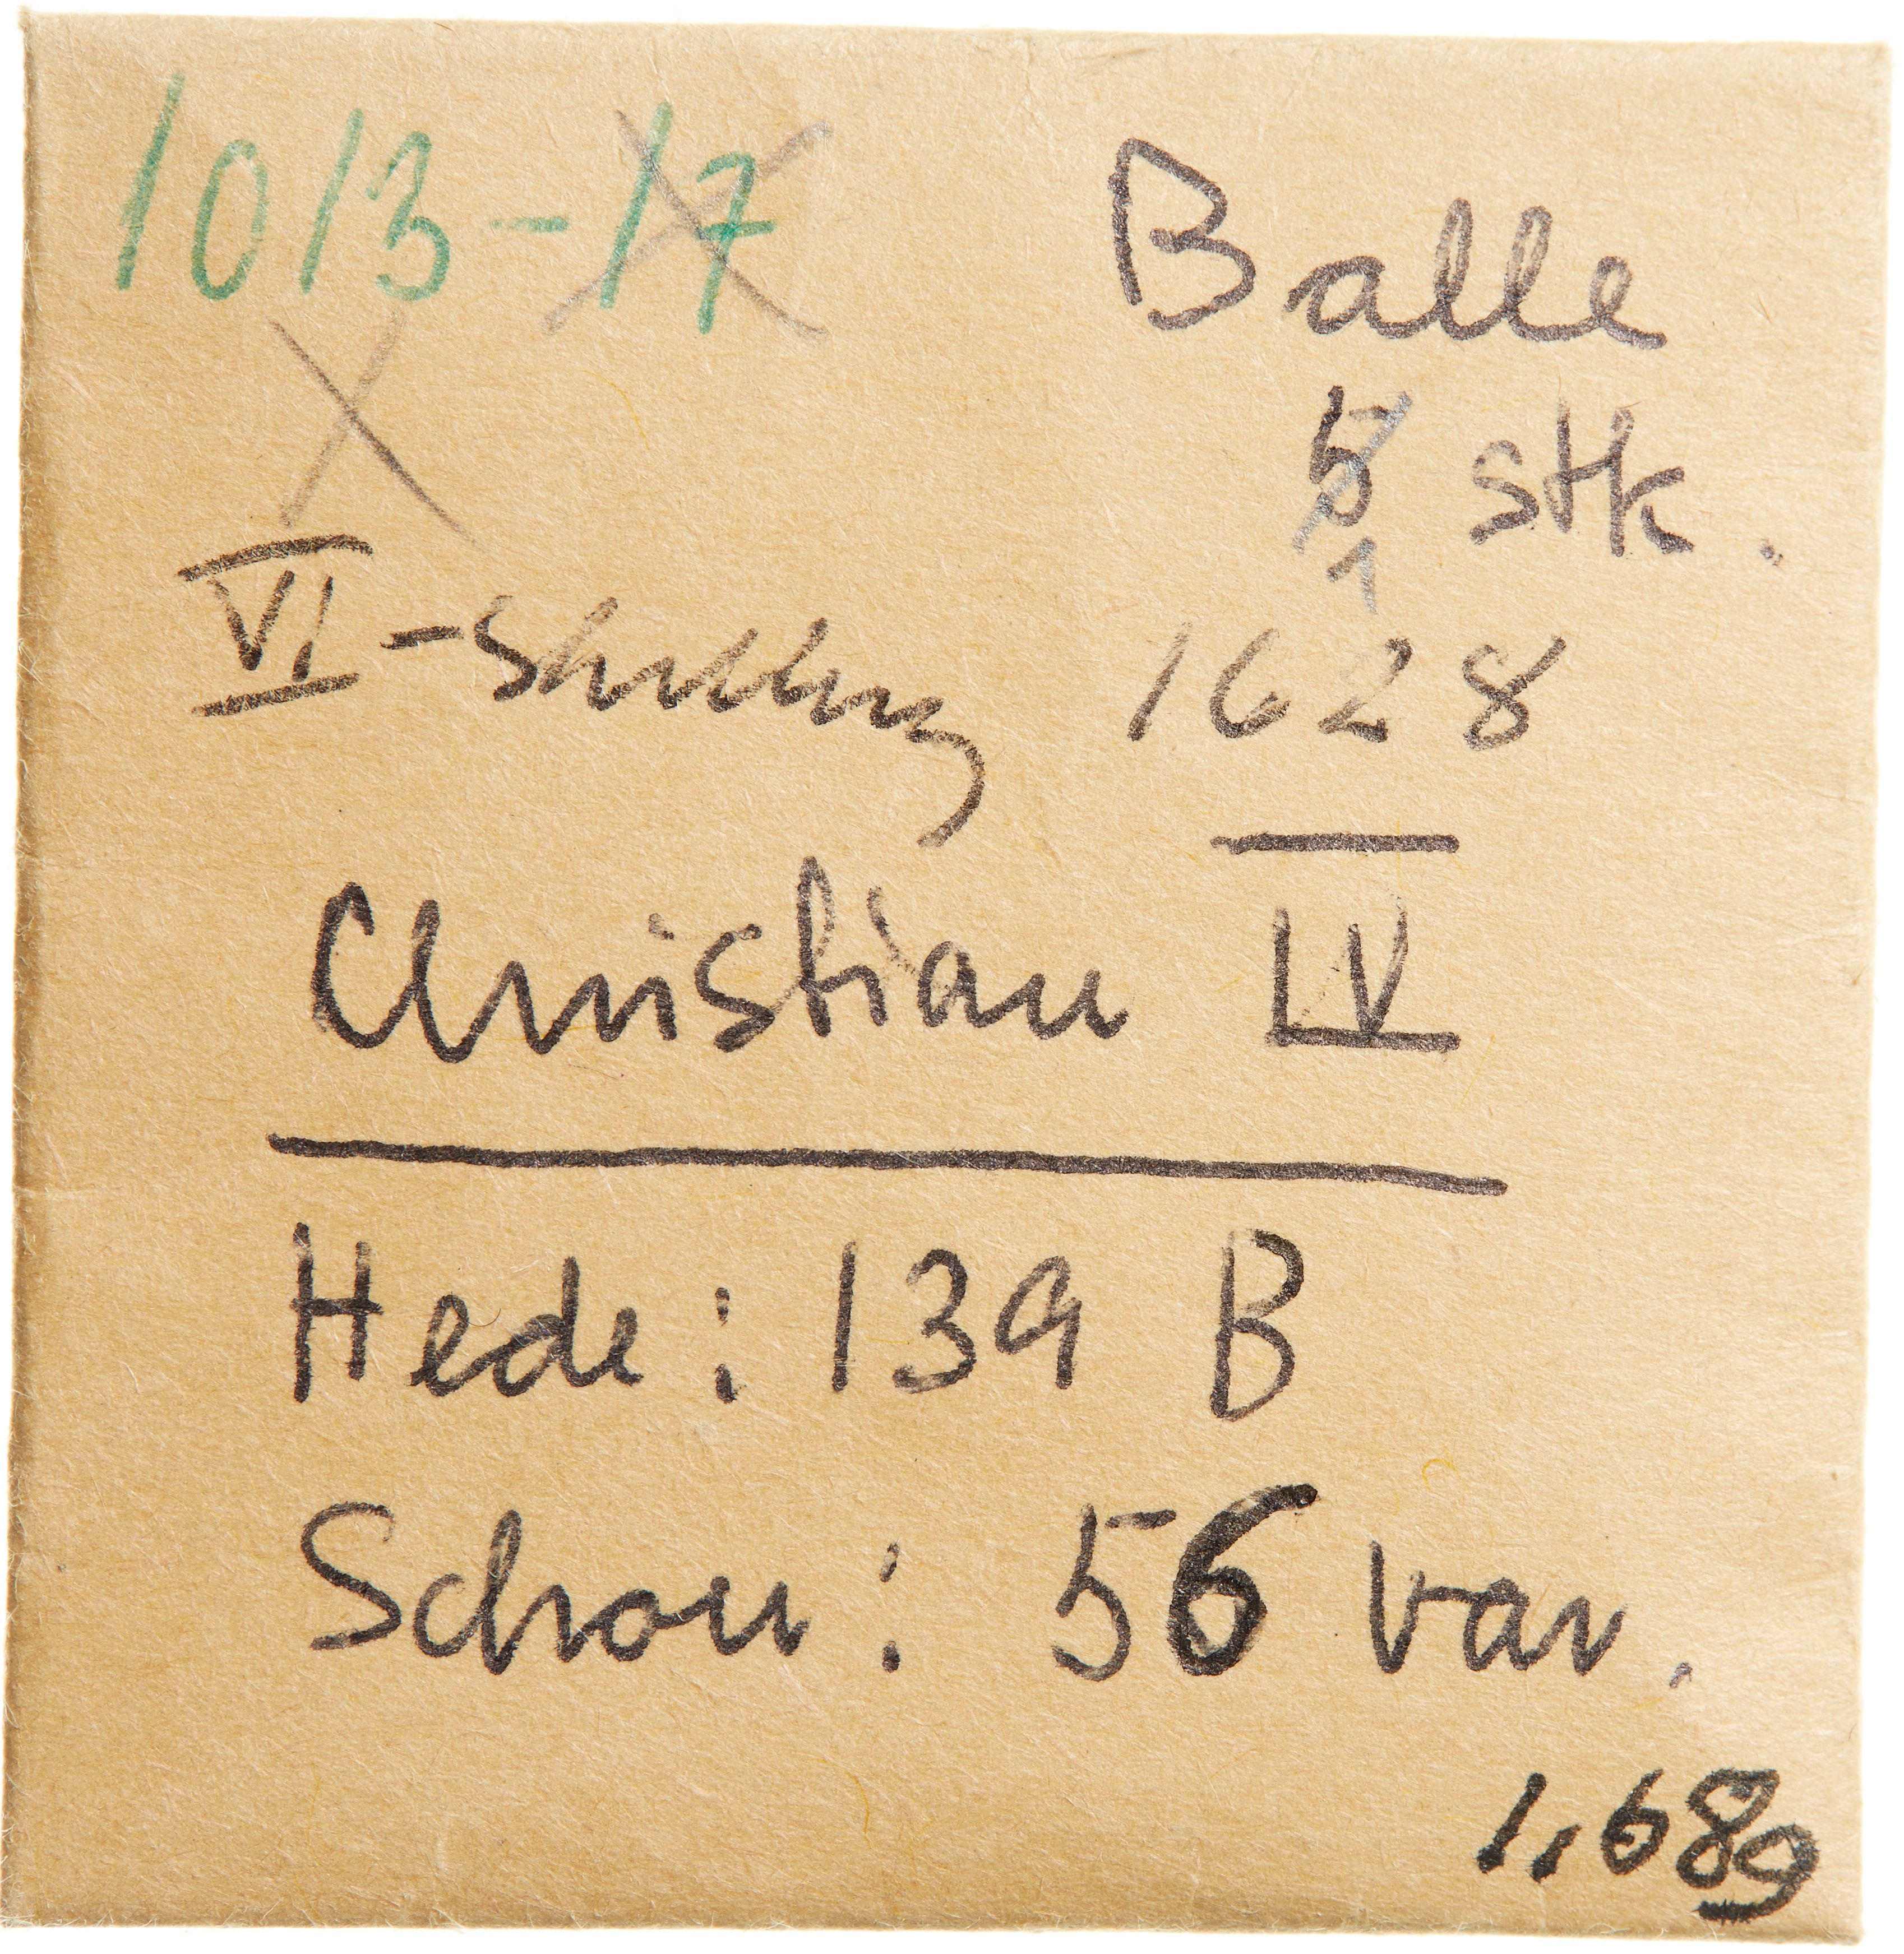 1013-17 Balle
5 stk.
1
VI-Skilling 1628
Christian IV
Hede: 139 B
Schou: 56 var.
1,68g